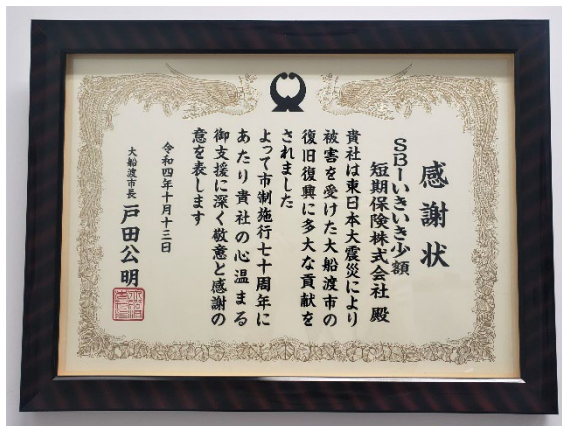 感謝状
SBIいきいき少額
短期保険株式会社 殿
貴社は東日本大震災により
被害を受けた大船渡市の
復旧復興に多大な貢献を
されました
よって市制施行七十周年に
あたり貴社の心温まる
御支援に深く敬意と感謝の
意を表します
令和四年十月十三日
大船渡市長 戸田公明